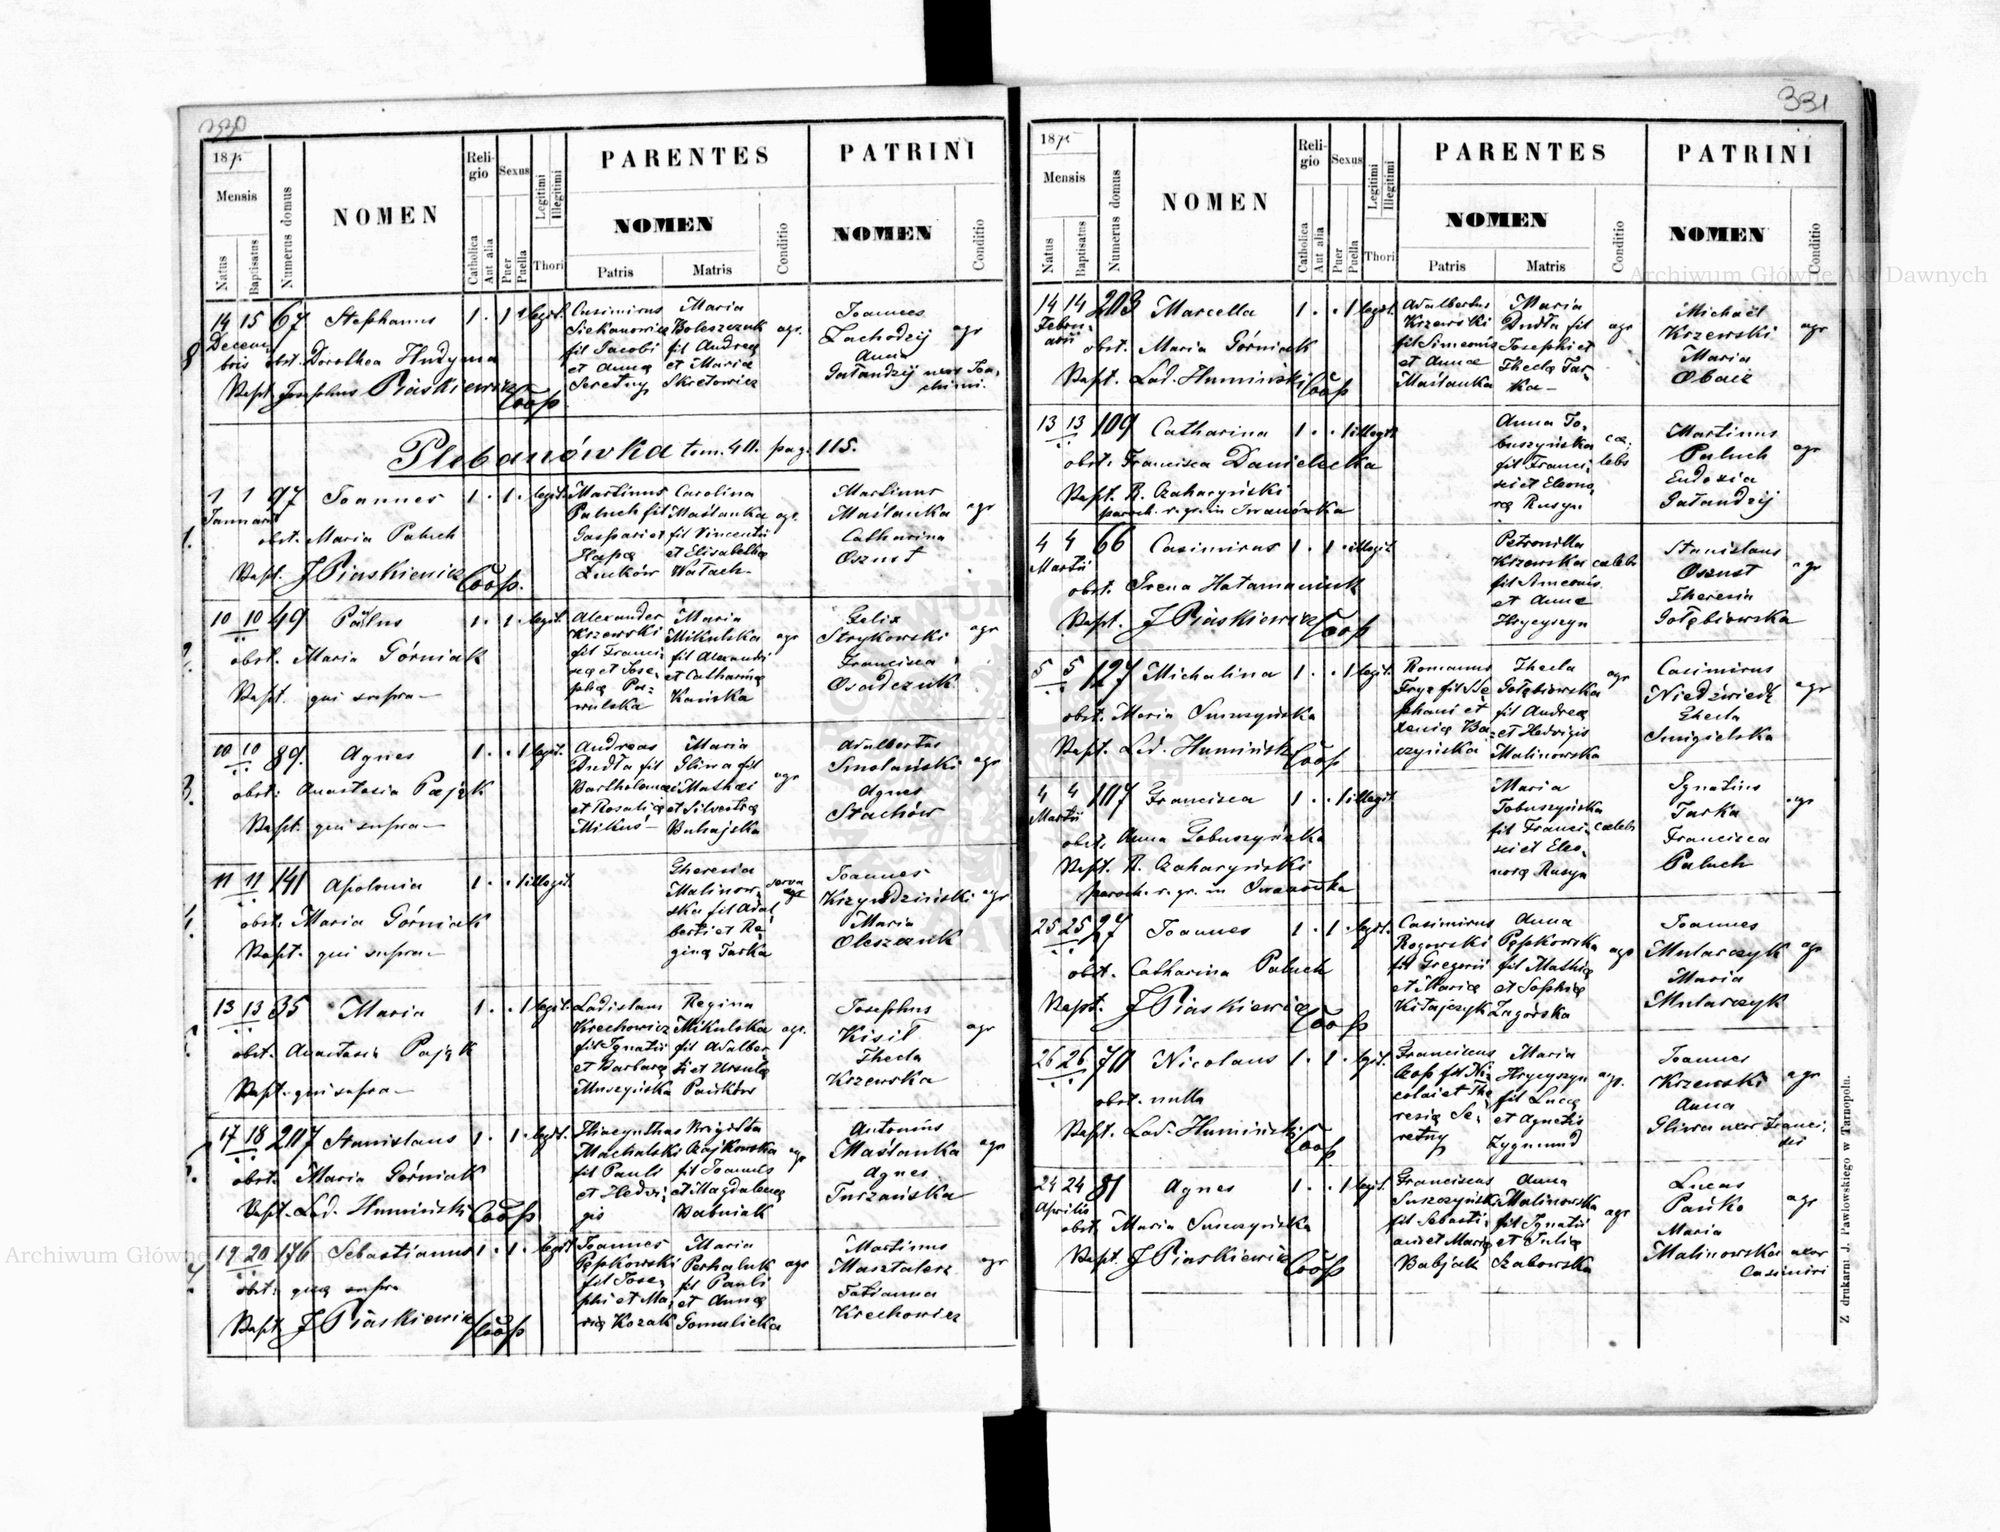 330
1875
Mensis
Natus
Baptisatus
Numerus domus
NOMEN
Religio
Catholica
Aut alia
Sexus
Puer
Puella
Legitimi
Illegitimi
Thori
PARENTES
NOMEN
Patris
Matris
Conditio
PATRINI
NOMEN
Conditio
8
14 15 67 Stephanus 1 . 1 . legit.
Decembris
obst. Dorothea Hudyma
Bapt. Josephus Piaskiewicz Coop
Casimirus
Siekanowicz
fil Jacobi
et Anna
Seretny
Maria
Boleszczuk
fil Andreę
et Maria
Skretowicz
agr.
Joannes
Zachodzij
Anna
Gałandzij uxor Joachimi
agr
Plebanówka tom. 40. pag. 115.
1.
1 1 97 Joannes 1 . 1 . legit.
Januarii
obst. Maria Paluch
Bapt. J Piaskiewicz Coop.
Martinus
Paluch fil
Gaspari et
Hapę
Łuków
Carolina
Maślanka
fil Vincentii
et Elisabetha
Wałach
agr.
Martinus
Maślanka
Catharina
Osznst
agr
2.
10 10 49 Paulus 1 . 1 . legit.
obst. Maria Górniak
Bapt. qui supra
Alexander
Krzewski
fil Francisceę et Josephę Pawulska
Maria
Mikulska
fil Alexandri
et Catharinę
Kańska
agr
Felix
Strykowski
Francisca
Osadczuk
agr
3.
10 10 89. Agnes 1 . . 1 legit.
obst. Anastasia Pająk
Bapt. qui supra
Andreas
Dudła fil
Bartholomaei
et Rosalię
Mikuś
Maria
Gliwa fil
Mathaei
et Silvestrę
Buhajska
agr
Adalbertus
Smolański
Agnes
Stachów
agr
4.
11 11 141 Apolonia 1 . . 1 illegit.
obst. Maria Górniak
Bapt. qui supra
Theresia
Malinowska fil Adalberti et Reginę Tarka
serva agr
Joannes
Krzyndziński
Maria
Oleszczuk
agr
13 13 35 Maria 1 . . 1 legit.
obst. Anastasia Pająk
Bapt. qui supra
Ladislaus
Krechowicz
fil Ignatii
et Barbarę
Muszyńska
Regina
Mikulska
fil Adalberti et Ursulę
Pańków
agr.
Josephus
Kisil
Thecla
Krzewska
agr
17 18 207 Stanislaus 1 . 1 . legit.
obst. Maria Górniak
Bapt. Lad. Humiński Coop
Hiacynthus
Machalski
fil Pauli
et Hedvigis
Brigitta
Czajkowska
fil Joannis
et Magdalenę
Babniak
agr
Antonius
Maślanka
Agnes
Turzańska
agr
19 20 176 Sebastianus 1 . 1 . legit
obst. quę supra
Bapt. J Piaskiewicz Coop
Joannes
Pępkowski
fil Josephi et Marię Kozak
Maria
Perhaluk
fil Pauli
et Annę
Gomulicka
agr
Martinus
Masztalerz
Tatianna
Krechowicz
agr
331
1875
Mensis
Natus
Baptisatus
Numerus domus
NOMEN
Religio
Catholica
Aut alia
Sexus
Puer
Puella
Legitimi
Illegitimi
Thori
PARENTES
NOMEN
Patris
Matris
Conditio
PATRINI
NOMEN
Conditio
14 14 203 Marcella 1 . . 1 legit
Februarii
obst. Maria Górniak
Bapt. Lad. Humiński Coop
Adalbertus
Krzewski
fil Simeonis
et Annae
Maślanka
Maria
Dudła fil
Josephi et
Theclę Tarka
agr
Michael
Krzewski
Maria
Obacz
agr
13 13 109 Catharina 1 . . 1 illegit.
obst. Francisca Danielecka
Bapt. R. Czaharyński
paroch. r. gr. in Iwanówka
Anna Tobuszyńska
fil Francisci et Eleonorę Rusyn
caelebs
Martinus
Paluch
Eudoxia
Gałandzij
agr
4 4 66 Casimirus 1 . 1 . illegit.
Martii
obst. Irena Hatamaniuk
Bapt. J Piaskiewicz Coop
Petronilla
Krzewska
fil Simeonis
et Annae
Hrycyszyn
caelebs
Stanislaus
Osznst
Theresia
Gołębiowska
agr
5 5 127 Michalina 1 . . 1 legit.
obst. Maria Suszczyńska
Bapt. Lad. Humiński Coop
Romanus
Fryz fil Stephani et
Xenię Baczyńska
Thecla
Gołębiowska
fil Andreę
et Hedvigis
Malinowska
agr
Casimirus
Niedźwiedź
Thecla
Smigielska
agr
4 4 107 Francisca 1 . . 1 illegit.
Martii
obst. Anna Tobuszyńska
Bapt. R. Czaharyński
paroch. r. gr. in Iwanówka
Maria
Tobuszyńska
fil Francisci et Eleonorę Rusyn
caelebs
Ignatius
Tarka
Francisca
Paluch
agr
25 25 97 Joannes 1 . 1 . legit.
obst. Catharina Paluch
Bapt. J Piaskiewicz Coop
Casimirus
Rogowski
fil Gregorii
et Marię
Kitajczyk
Anna
Pępkowska
fil Mathię
et Sophię
Zagórska
agr
Joannes
Mularczyk
Maria
Mularczyk
agr
26 26 70 Nicolaus 1 . 1 . legit.
obst. nulla
Bapt. Lad. Humiński Coop
Franciscus
Czop fil Nicolai et Theresię Seretny
Maria
Hrycyszyn
fil Lucę
et Agnetis
Zygmund
agr.
Joannes
Krzewski
Anna
Gliwa uxor Francisci
agr
24 24 81 Agnes 1 . . 1 legit.
Aprilis
obst. Maria Suszczyńska
Bapt. J Piaskiewicz Coop
Franciscus
Suszczyński
fil Sebastiani et Marię
Babjak
Anna
Malinowska
fil Ignatii
et Julię
Szabowska
agr
Lucas
Pańko
Maria
Malinowska uxor
Casimiri
agr
Z drukarni J. Pawłowskiego w Tarnopolu.
Archiwum Główne Akt Dawnych
Archiwum Główne Akt Dawnych